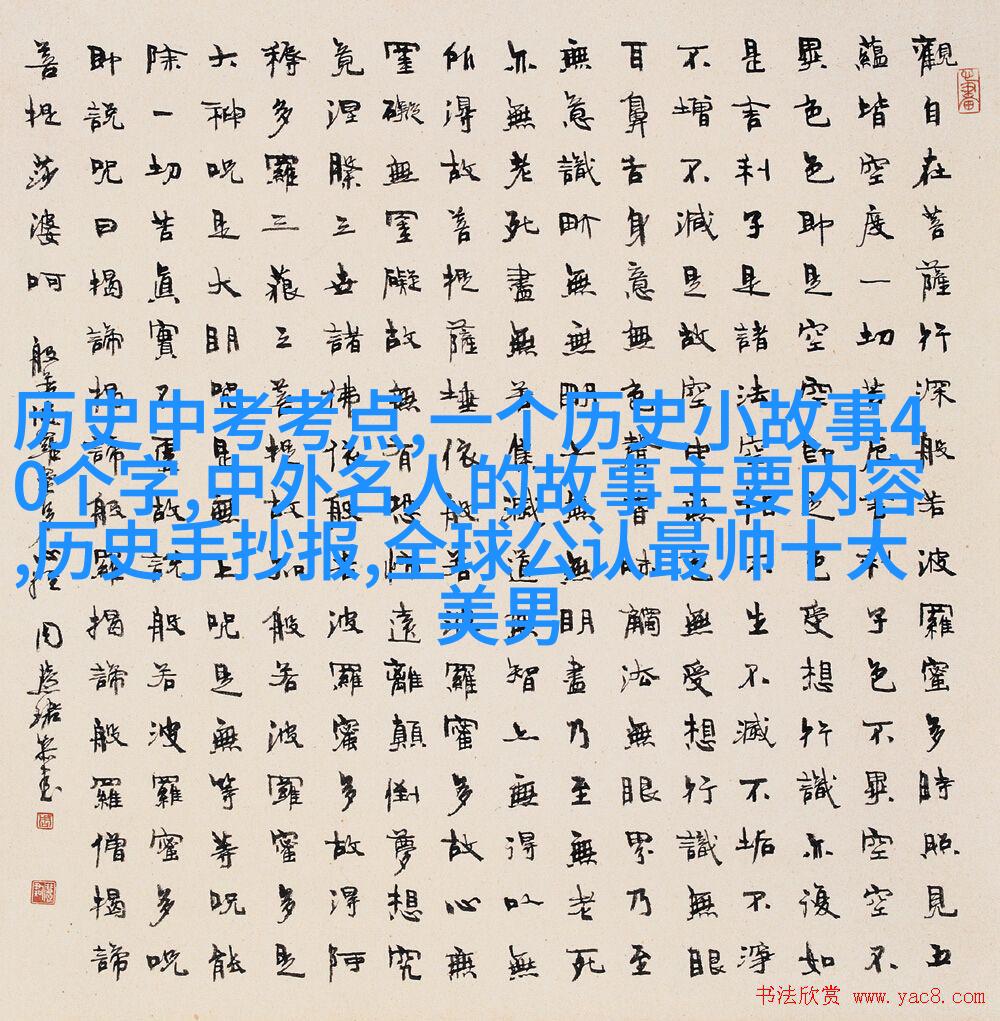 觀自在菩薩行深般若波羅蜜多時照見五
蘊皆空度一切苦厄舍利子色不異空空不
異色色即是空空即是色受想行識亦復如
是舍利子是諸法空相不生不滅不垢不淨
不增不減是故空中無色無受想行識無眼
耳鼻舌身意無色聲香味觸法無眼界乃至
無意識界無無明亦無無明盡乃至無老死
亦無老死盡無苦集滅道無智亦無得以無
所得故菩提薩埵依般若波羅蜜多故心無
罣礙無罣礙故無有恐怖遠離顛倒夢想究
竟涅槃三世諸佛依般若波羅蜜多故得阿
耨多羅三藐三菩提故知般若波羅蜜多是
大神咒是大明咒是無上咒是無等等咒能
除一切苦真實不虛故說般若波羅蜜多咒
即說咒曰揭諦揭諦般羅揭諦般羅僧揭諦
菩提莎婆呵
般若波羅蜜多心經 周慧珺恭書
历史中考考点,一个历史小故事4
0个字,中外名人的故事主要内容
,历史手抄报,全球公认最帅十大
美男
书法欣赏 www.yac8.com